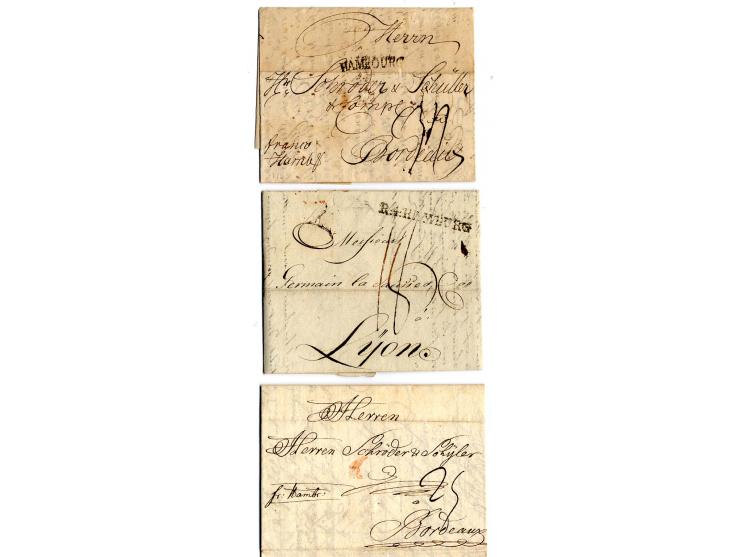 Herrn
HAMBOURG
Hrn Schröder & Schüller
& Comp.
franco
Hambg
Bordeaux
R.4.HAMBURG
Messieurs
Germain la
Lÿon.
Herren
Herren Schröder & Schÿler
fr: Hambr:
à
25
Bordeaux